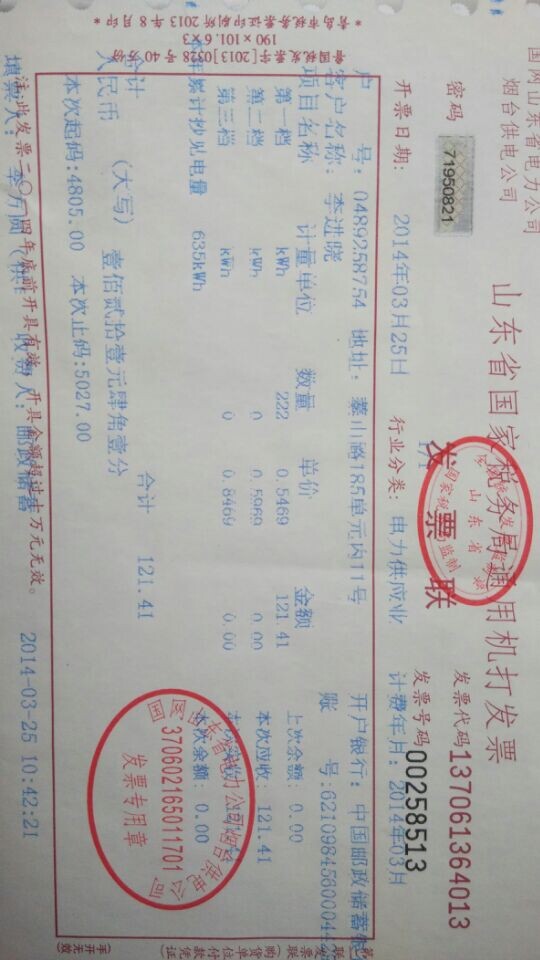 国网山东省电力公司
烟台供电公司
山东省国家税务局通用机打发票
发票联
发票代码137061364013
发票号码00258513
密码 71950821
开票日期: 2014年03月25日 行业分类: 电力供应业 计费年月: 2014年03月
户 号: 0489258754 地址: 蓁山路185单元内11号 开户银行: 中国邮政储蓄银
客户名称: 李进晓 账 号:62109845600044
项目名称 计量单位 数量 单价 金额 上次余额: 0.00
第一档 kWh 222 0.5469 121.41 本次应收: 121.41
第二档 kWh 0 0.5969 0.00
第三档 kWh 0 0.8469 0.00 本次余额: 0.00
本年累计抄见电量 635kWh
合计 合计 121.41
人民币 (大写) 壹佰贰拾壹元肆角壹分
本次起码:4805.00 本次止码:5027.00
注:此发票二〇一四年底前开具有效,开具金额超过十万元无效。
填票人: 收款人: 邮政储蓄 2014-03-25 10:42:21
370602165011701
发票专用章
鲁国税发票字[2013]0328号40万份
190×101.6×3
*青岛市税务票证印刷所2013年8月印*
(手开无效)